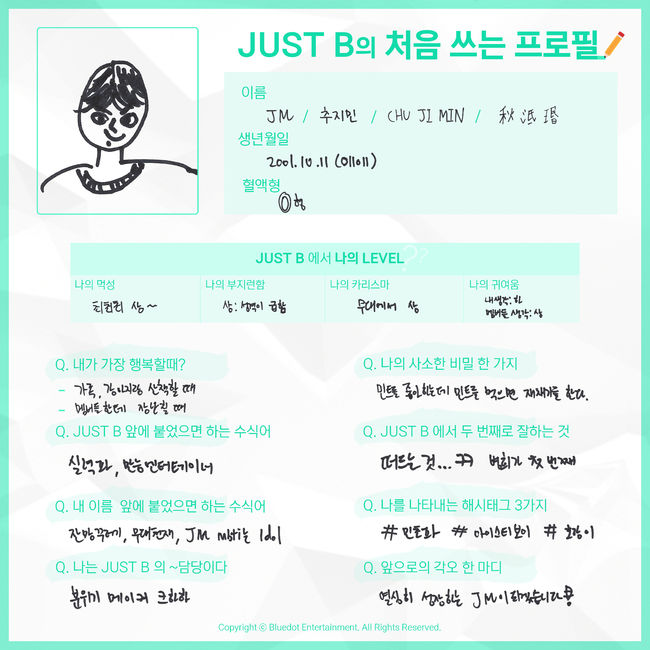 JUST B의 처음 쓰는 프로필
이름
JM / 추지민 / CHU JI MIN / 秋 志 瑉
생년월일
2001.10.11 (011011)
혈액형
O형
JUST B 에서 나의 LEVEL ??
나의 먹성
나의 부지런함
나의 카리스마
나의 귀여움
상~
상: 성격이 급함
무대에서 상
내생각: 하
멤버들 생각: 상
Q. 내가 가장 행복할때?
- 가족, 강아지랑 산책할 때
- 멤버들한테 장난칠 때
Q. 나의 사소한 비밀 한 가지
민트를 좋아하는데 민트를 먹으면 재채기를 한다.
Q. JUST B 앞에 붙었으면 하는 수식어
실력파, 만능엔터테이너
Q. JUST B 에서 두 번째로 잘하는 것
떠드는 것... ㅋㅋ 첫 번째
Q. 내 이름 앞에 붙었으면 하는 수식어
잔망꾸러기, 무대천재, JM Idol
Q. 나를 나타내는 해시태그 3가지
# 민초파 # # 호랑이
Q. 나는 JUST B 의 ~담당이다
분위기 메이커 크하하
Q. 앞으로의 각오 한 마디
열심히 성장하는 JM이 되겠습니다!
Copyright ⓒ Bluedot Entertainment. All Rights Reserved.